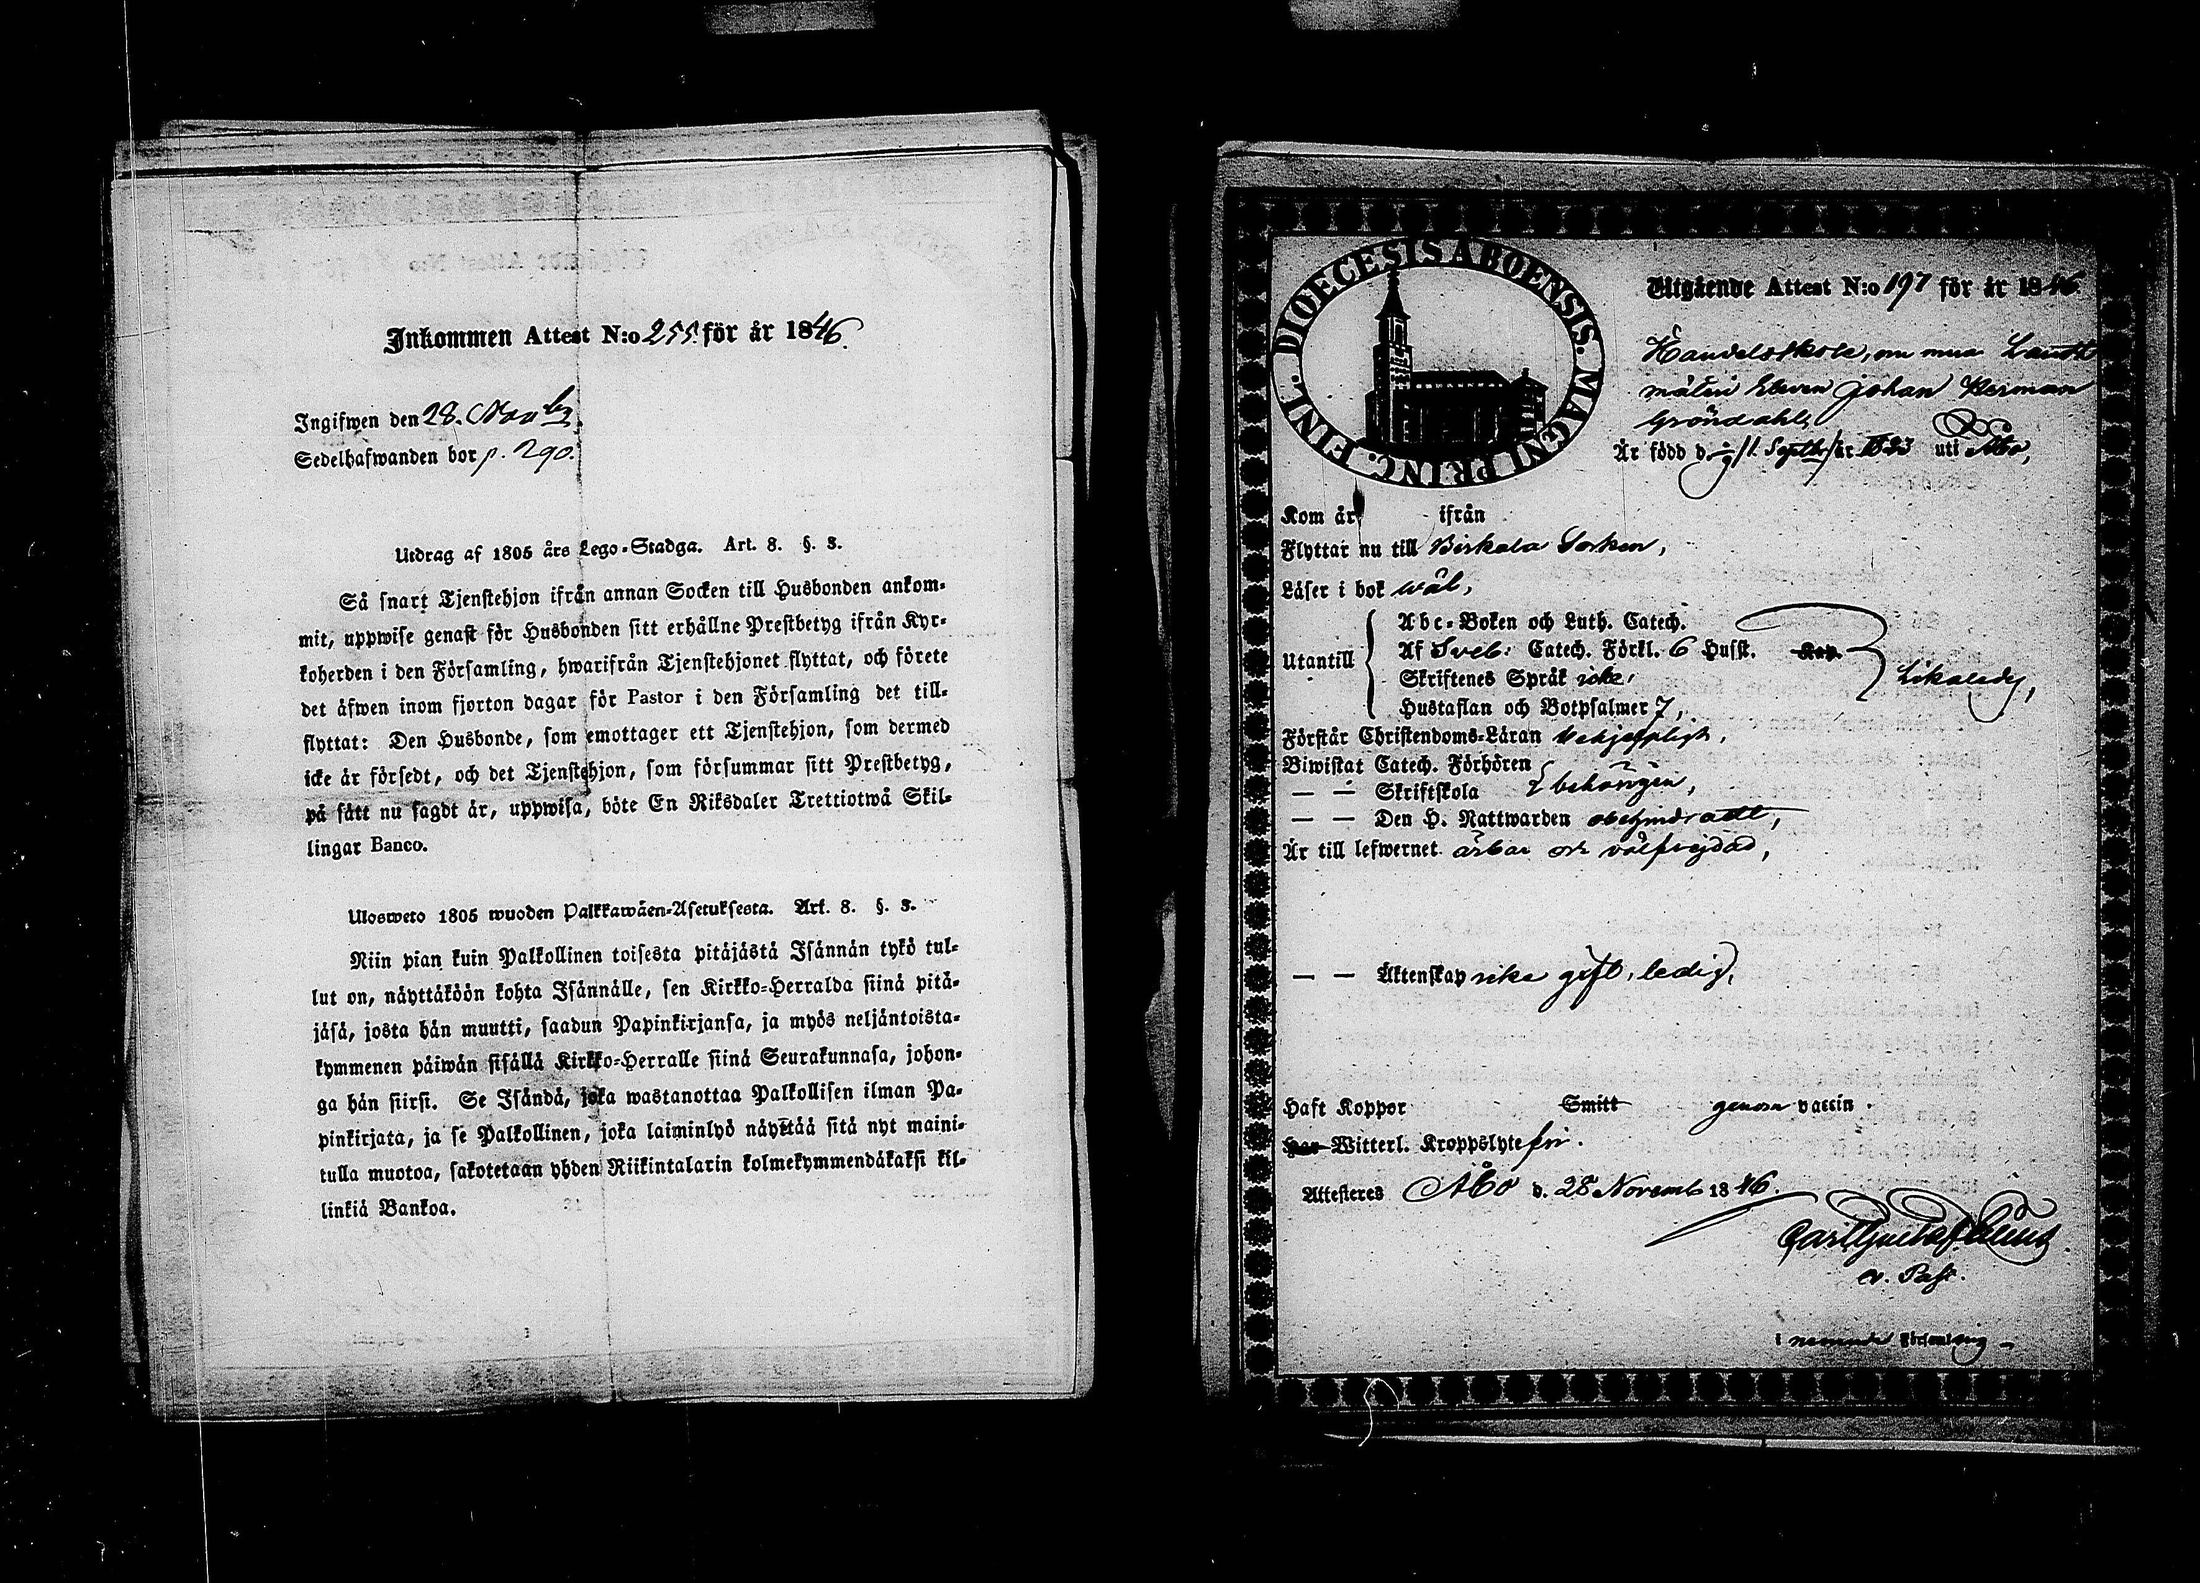 Inkommen Attest N:o 255. för år 1846.
Ingifwen den 28. Novbr.
Sedelhafwanden bor p. 290.
Utdrag af 1805 års Lego-Stadga. Art. 8. §. 3.
Så snart Tjenstehjon ifrån annan Socken till Husbonden ankom-
mit, uppwise genast för Husbonden sitt erhållne Prestbetyg ifrån Kyr-
koherden i den Församling, hwarifrån Tjenstehjonet flyttat, och förete
det äfwen inom fjorton dagar för Pastor i den Församling det till-
flyttat: Den Husbonde, som emottager ett Tjenstehjon, som dermed
icke är försedt, och det Tjenstehjon, som försummar sitt Prestbetyg,
på sätt nu sagdt är, uppwisa, böte En Riksdaler Trettiotwå Skil-
lingar Banco.
Ulosweto 1805 wuoden Palkkawäen-Asetuksesta. Art. 8. §. 3.
Niin pian kuin Palkollinen toisesta pitäjästä Isännän tykö tul-
lut on, näyttäköön kohta Isännälle, sen Kirkko-Herralda siinä pitä-
jäsä, josta hän muutti, saadun Papinkirjansa, ja myös neljäntoista-
kymmenen päiwän sisällä Kirkko-Herralle siinä Seurakunnasa, johon-
ga hän siirsi. Se Isändä, joka wastanottaa Palkollisen ilman Pa-
pinkirjata, ja se Palkollinen, joka laiminlyö näyttää sitä nyt maini-
tulla muotoa, sakotetaan yhden Riikintalarin kolmekymmendäkaksi kil-
linkiä Bankoa.
DIOECESIS ABOENSIS. MAGNI PRINC. FINL.
Utgående Attest N:o 197 för år 1846
Johan Herman
Gröndahl,
Är född d. 11 Septbr år 1823 uti Åbo,
Kom år ifrån
Flyttar nu till Birkala Socken,
Läser i bok wäl,
Utantill
Abc-Boken och Luth. Catech.
Af Sveb: Catech. Förkl. 6 Husst. Kap.
Skriftenes Språk icke,
Hustaflan och Botpsalmer 7,
Likaledes,
Förstår Christendoms-Läran behjelpligt,
Biwistat Catech. Förhören
— — Skriftskola behörigen,
— — Den H. Nattwarden
Är till lefwernet ärbar och välfrejdad,
— — Äktenskap icke gift, ledig,
Haft Koppor Smitt genom vaccin.
Har Witterl. Kroppslyte fri.
Attesteras Åbo d. 28 Novemb 1846.
Carl Gustaf
v. Past.
i Församling